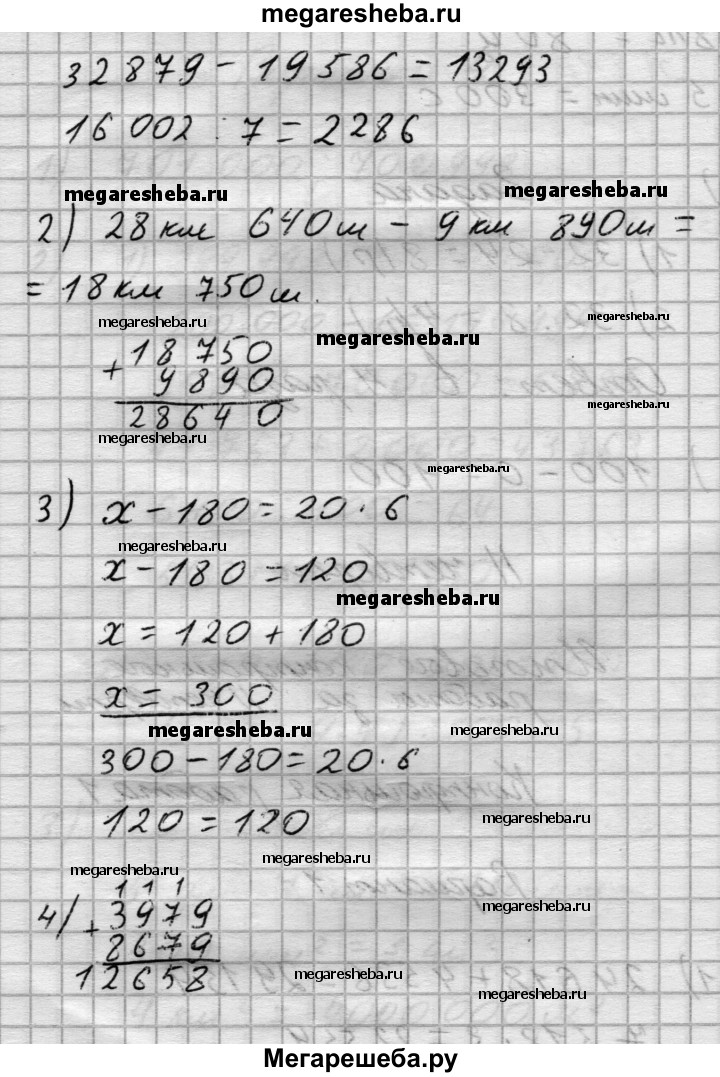 megaresheba.ru
32879 - 19586 = 13293
16 002 : 7 = 2286
megaresheba.ru
megaresheba.ru
2) 28 км 640 м - 9 км 890 м =
= 18 км 750 м.
megaresheba.ru
megaresheba.ru
megaresheba.ru
+ 18 750
9 890
28640
megaresheba.ru
megaresheba.ru
megaresheba.ru
3) x - 180 = 20 · 6
megaresheba.ru
x - 180 = 120
megaresheba.ru
x = 120 + 180
x = 300
megaresheba.ru
megaresheba.ru
300 - 180 = 20 · 6
120 = 120
megaresheba.ru
megaresheba.ru
megaresheba.ru
1 1 1
4) + 3979
megaresheba.ru
8679
12658
megaresheba.ru
megaresheba.ru
Мегарешеба.ру